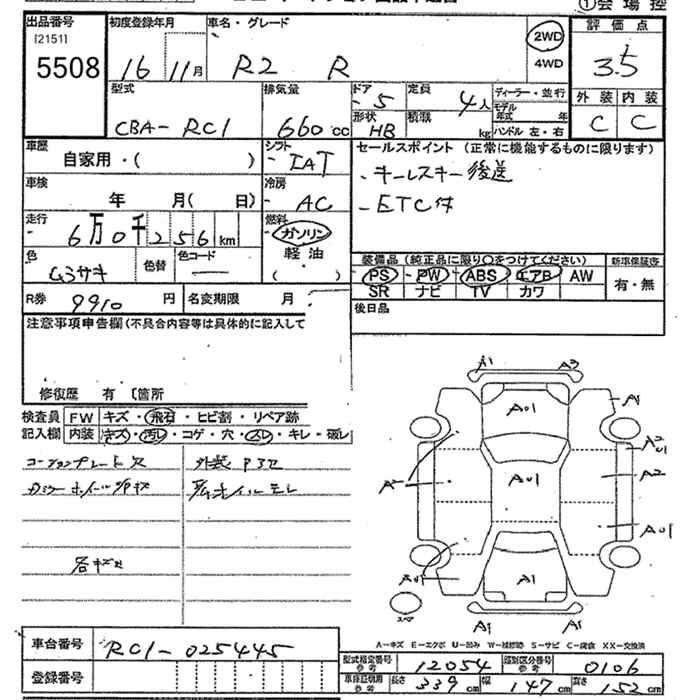 ①会場控
出品番号 初度登録年月 車名・グレード 評価点
[2151]
5508 16 11月 R2 R 2WD 4WD 3.5
型式 排気量 ドア 定員 ディーラー・並行 外装 内装
CBA-RC1 660cc 5 4人 モデル年式 年 C C
形状 HB 積載 kg ハンドル 左・右
車歴 自家用・( ) シフト IAT セールスポイント (正常に機能するものに限ります)
車検 年 月( 日) 冷房 AC -キーレスキー後送
走行 6万0千256km 燃料 ガソリン 軽油 ( ) -ETC付
色 ムラサキ 色替 色コード 装備品 (純正品に限り○をつけてください) 新車保証書
PS PW ABS エアB AW 有・無
SR ナビ TV カワ
R券 9910円 名変期限 月 後日品
注意事項申告欄(不具合内容等は具体的に記入して
修復歴 有 〔箇所
検査員 FW キズ・飛石・ヒビ割・リペア跡
記入欄 内装 キズ・汚レ・コゲ・穴・スレ・キレ・破レ
コーションプレート欠
各キズ
A1 A2
A01 A1
A2 A01
A01 A2
A A01
A01 A1
スペア A1 A1
A-キズ E-エクボ U-凹み W-補修跡 S-サビ C-腐食 XX-交換済
車台番号 RC1-025445
型式指定番号 参考 12054 類別区分番号 参考 0106
登録番号 車庫証明用 参考 長さ 339cm 幅 147cm 高さ 152cm